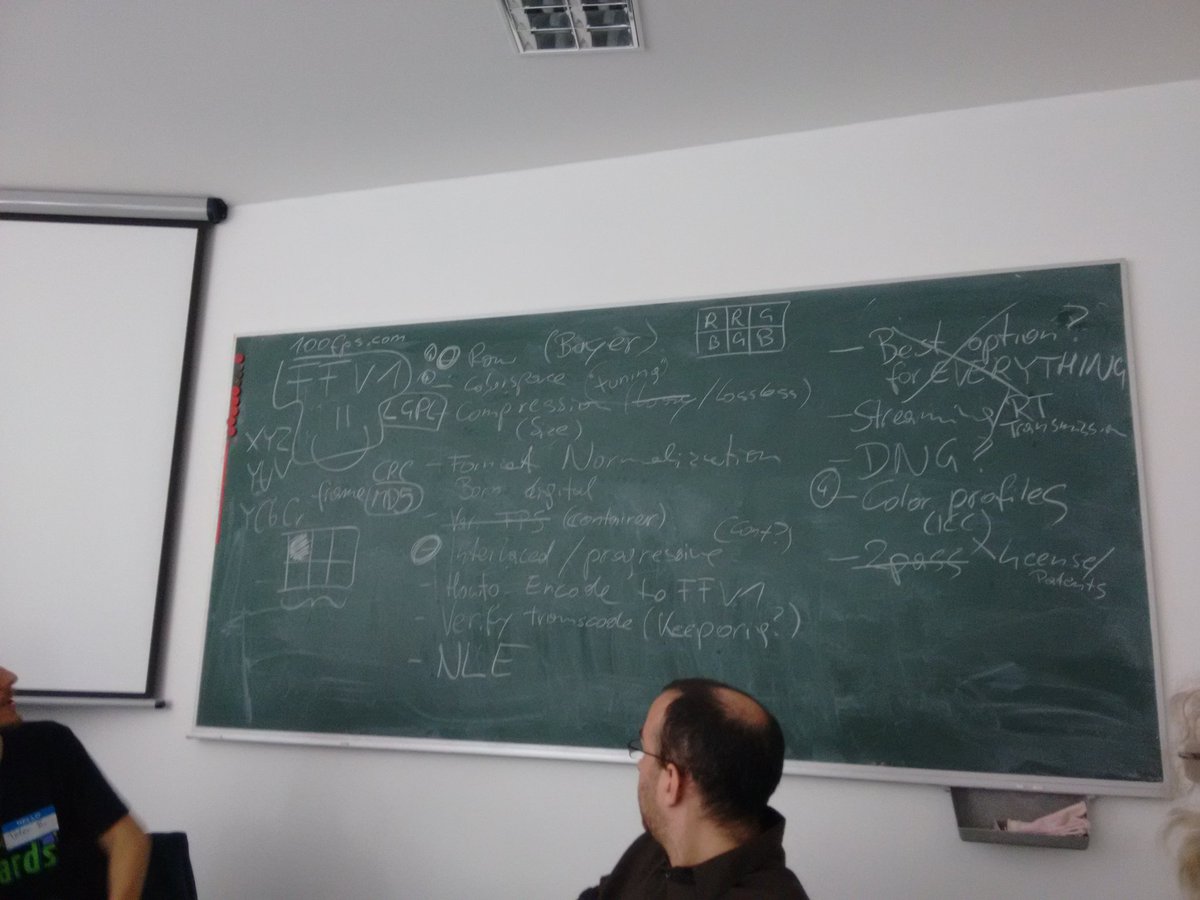 100fps.com
FFV1
LGPL
XYZ
YUV
YCbCr
CRC
- frame MD5
Raw (Bayer)
R R G
B G B
- Colorspace ("Tuning")
- Compression (Lossy/Lossless)
(Size)
- Format Normalization
- Born digital
- Var FPS (container)
(Cont?)
- Interlaced / progressive
- Howto Encode to FFV1
- Verify transcode (Keep orig?)
- NLE
- Best option?
for EVERYTHING
- Streaming/RT
Transmission
- DNG?
4 - Color profiles
(ICC)
- 2pass License/
Patents
HELLO
ards